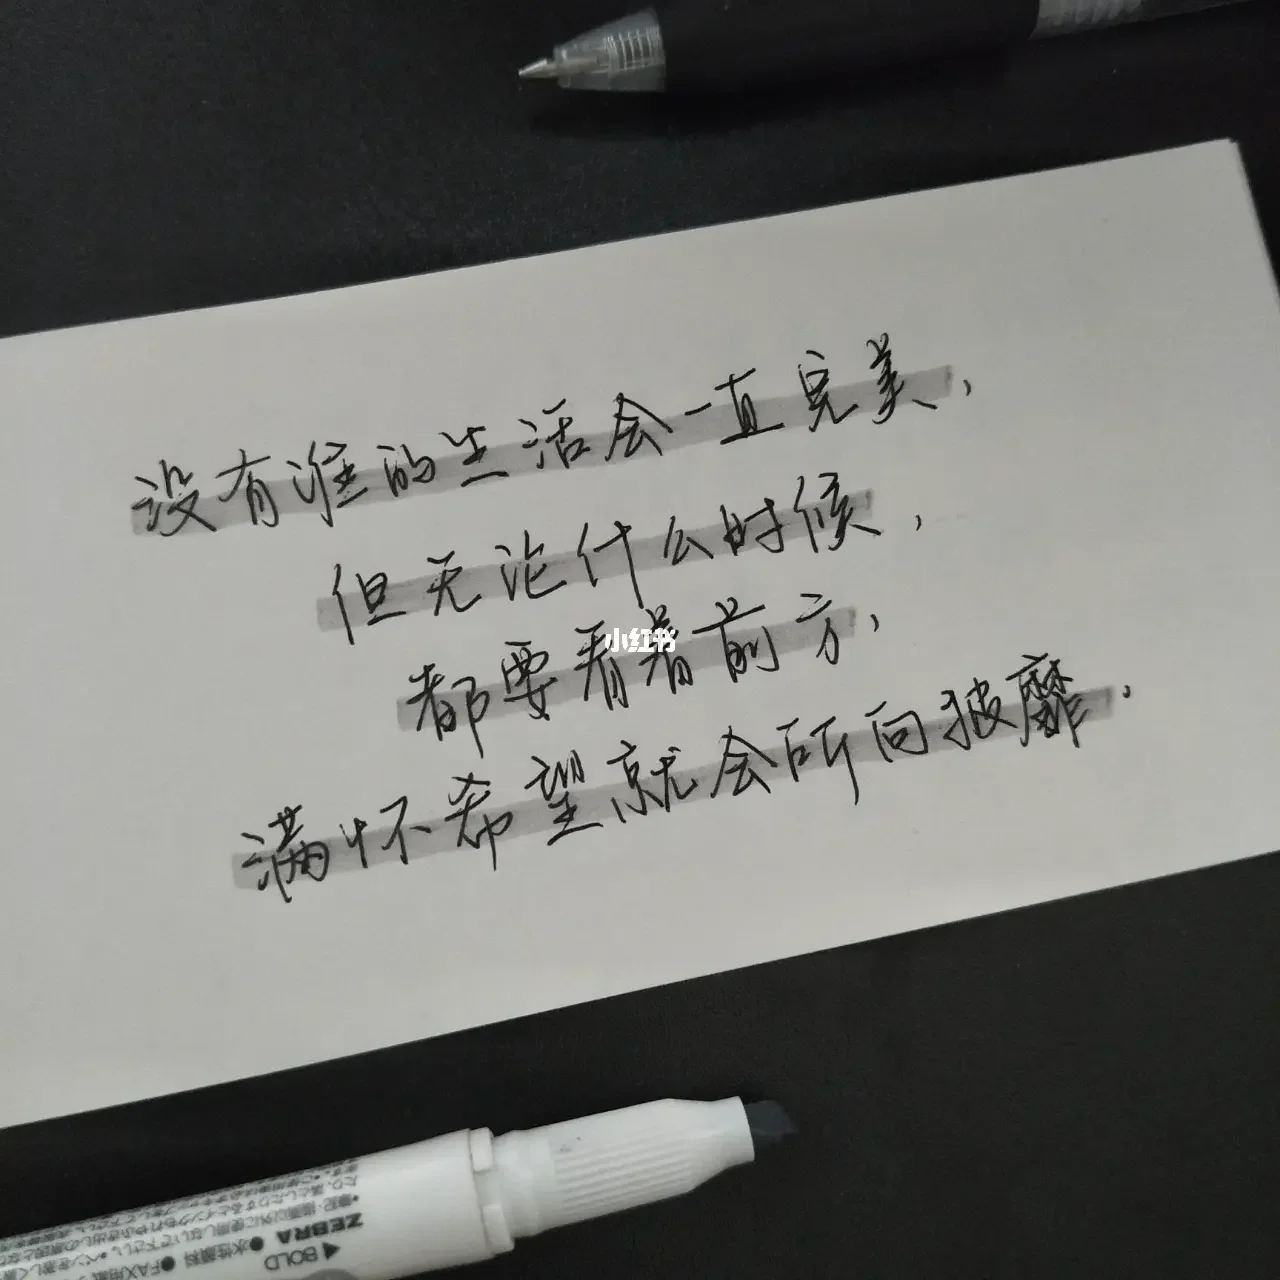 没有谁的生活会一直完美，
但无论什么时候，
都要看着前方，
满怀希望就会所向披靡．
小红书
ZEBRA
BOLD
水性顔料